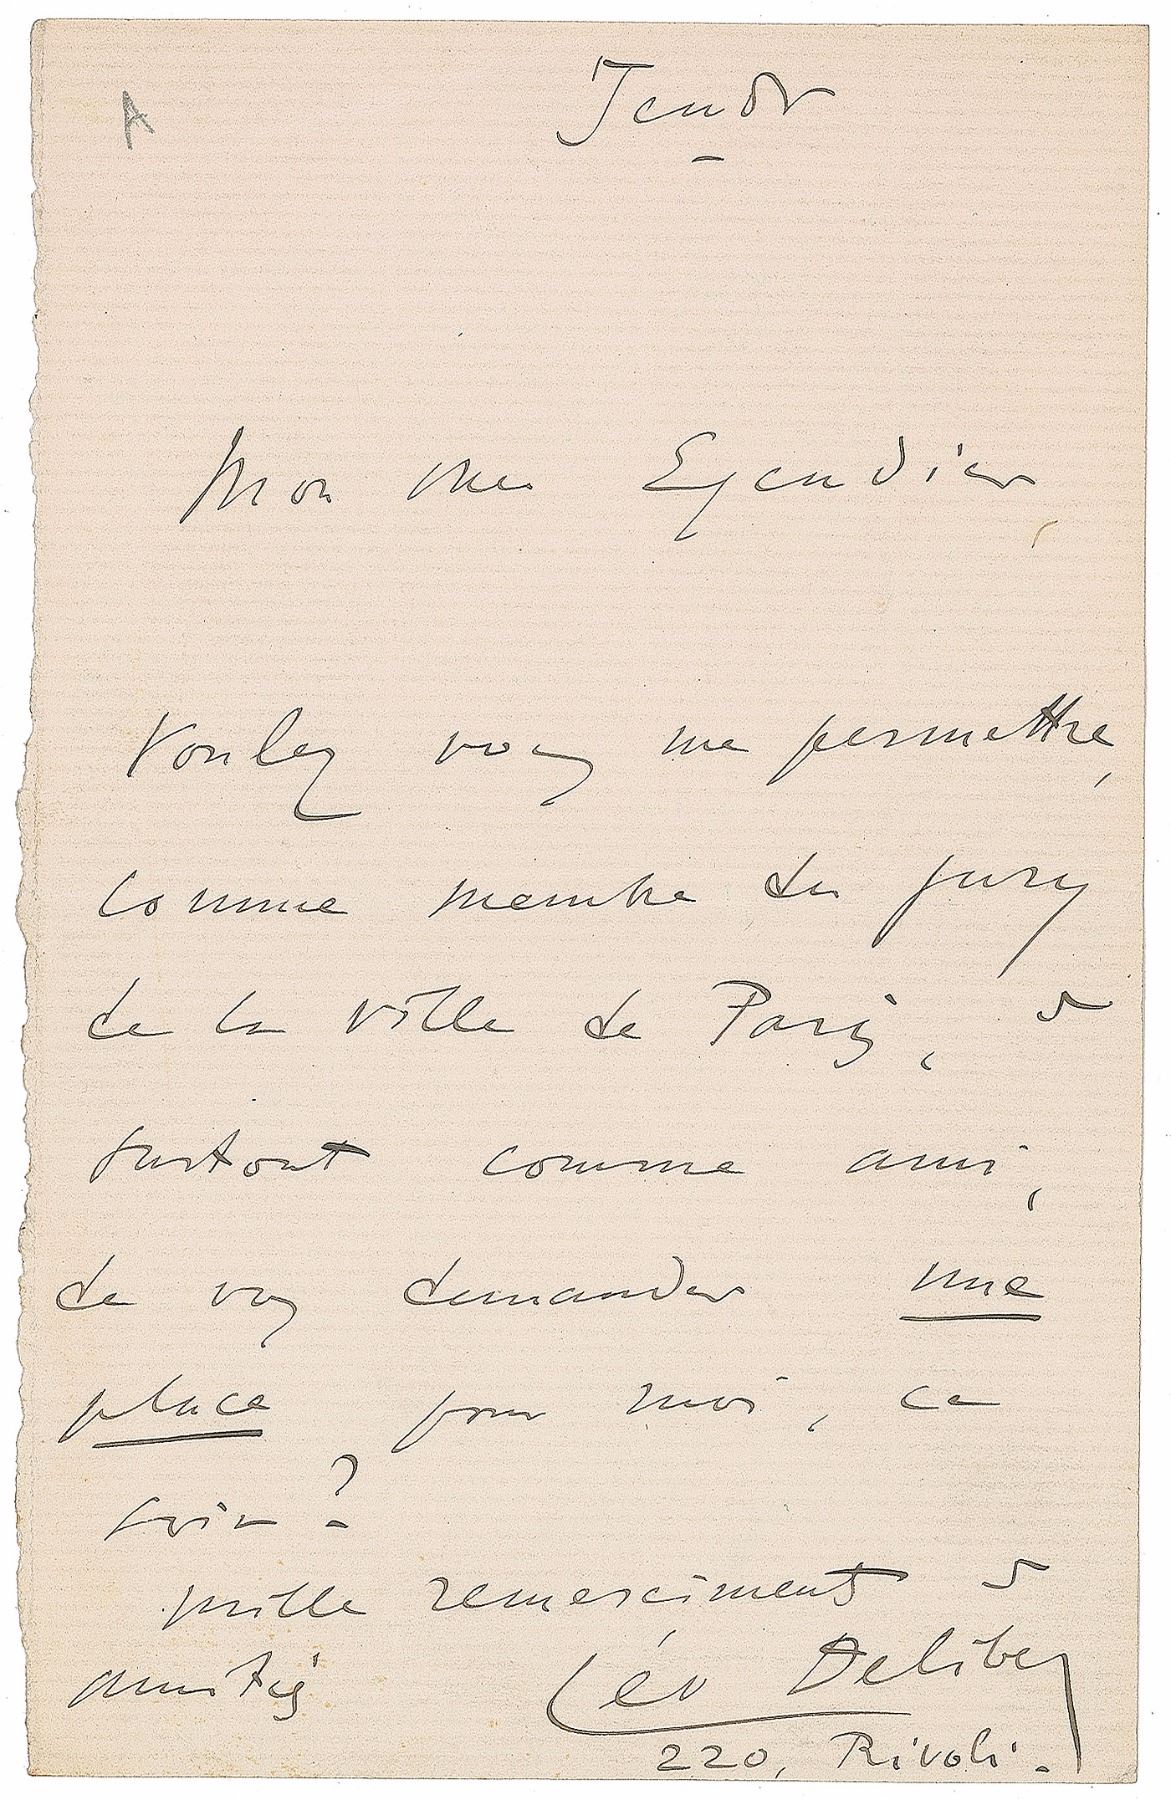 A
Jeudi
Mon cher Escudier,
Voulez vous me permettre,
comme membre du jury
de la ville de Paris, et
surtout comme ami,
de vous demander une
place pour moi, ce
soir ?
Mille remerciments et
amitiés
Léo Delibes
220, Rivoli.